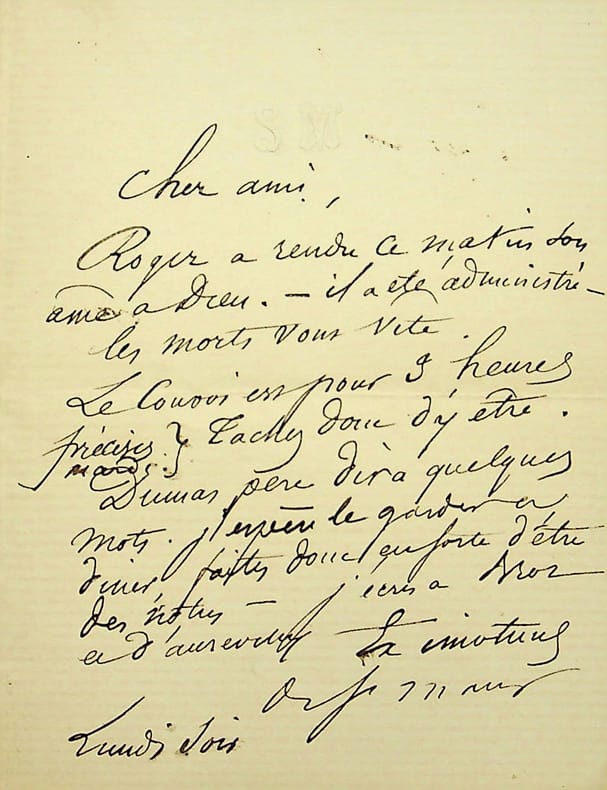 Cher ami,
Roger a rendu ce matin son
ame a Dieu. — il a eté administré —
les morts vont vite.
Le Convoi est pour 9 heures
précises } Tachez donc d'y etre.
mardi
Dumas père dira quelques
mots. J'espère le garder a
diner, faites donc en sorte d'être
des nôtres — j'ecris a
et d'aurevilly
de St Maur
Lundi soir